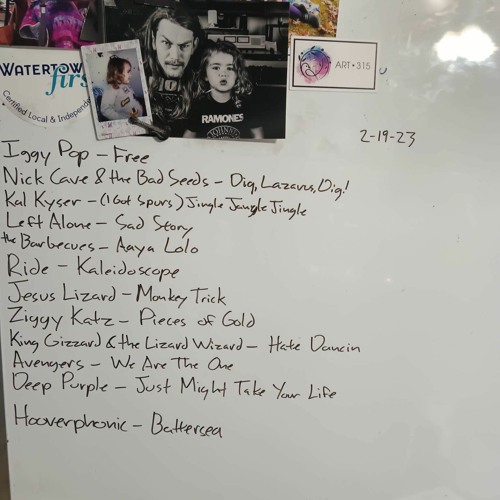 WATERTOWN
first
Certified Local & Independe
RAMONES
JOHNNY
ART • 315
2-19-23
Iggy Pop – Free
Nick Cave & the Bad Seeds – Dig, Lazarus, Dig!
Kal Kyser – (I Got Spurs) Jingle Jangle Jingle
Left Alone – Sad Story
the Barbecues – Aaya Lolo
Ride – Kaleidoscope
Jesus Lizard – Monkey Trick
Ziggy Katz – Pieces of Gold
King Gizzard & the Lizard Wizard – Hate Dancin
Avengers – We Are The One
Deep Purple – Just Might Take Your Life
Hooverphonic – Battersea